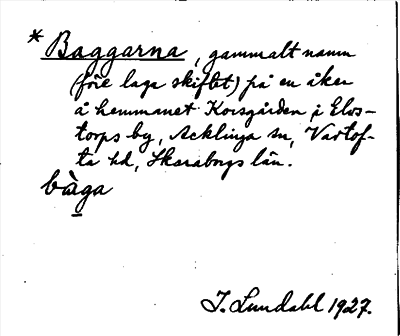 * Baggarna, gammalt namn
(före laga skiftet) på en åker
å hemmanet Korsgården i Elvs-
torps by, Acklinga sn, Vartof-
ta hd, Skaraborgs län.
bàga
J. Lundahl 1927.